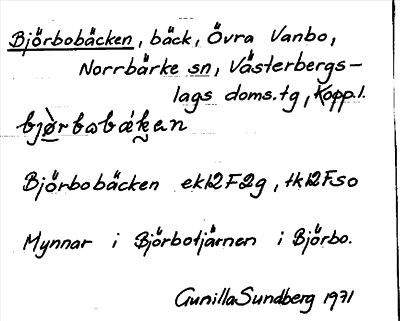 Björbobäcken, bäck, Övra Vanbo,
Norrbärke sn, Västerbergs-
lags doms.tg, Kopp.l.
bjø̀rbobäkan
Björbobäcken ek12F2g, tk12F:so
Mynnar i Björbotjärnen i Björbo.
Gunilla Sundberg 1971